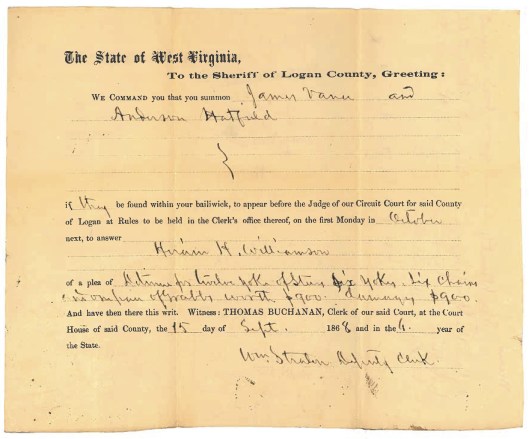 The State of West Virginia,
To the Sheriff of Logan County, Greeting:
WE COMMAND you that you summon James Vance and
Anderson Hatfield
if they be found within your bailiwick, to appear before the Judge of our Circuit Court for said County
of Logan at Rules to be held in the Clerk's office thereof, on the first Monday in October
next, to answer
Hiram H. Williamson
of a plea of Detinue for twelve yoke of Steers Six yokes, Six Chains
worth $900. Damages $900.
And have then there this writ. Witness: THOMAS BUCHANAN, Clerk of our said Court, at the Court
House of said County, the 15 day of Sept. 1868 and in the 6. year of
the State.
Wm Straton Deputy Clerk.